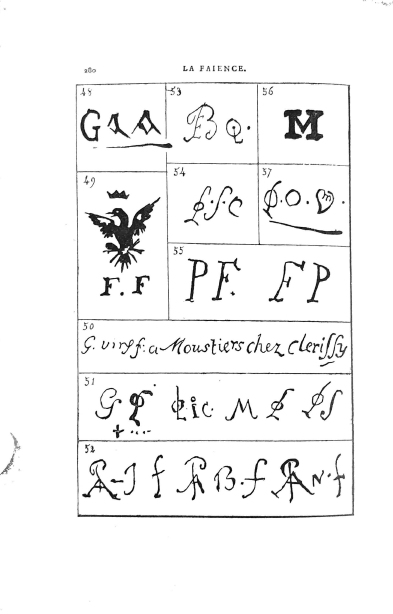 280
LA FAIENCE.
48
G A A
53
B Q.
56
M
49
F. F
54
f.s c
57
O.
55
PF. FP
50
G. viry f. a Moustiers chez clerissy
51
G P ic M
52
A-J f A B.f A N.f